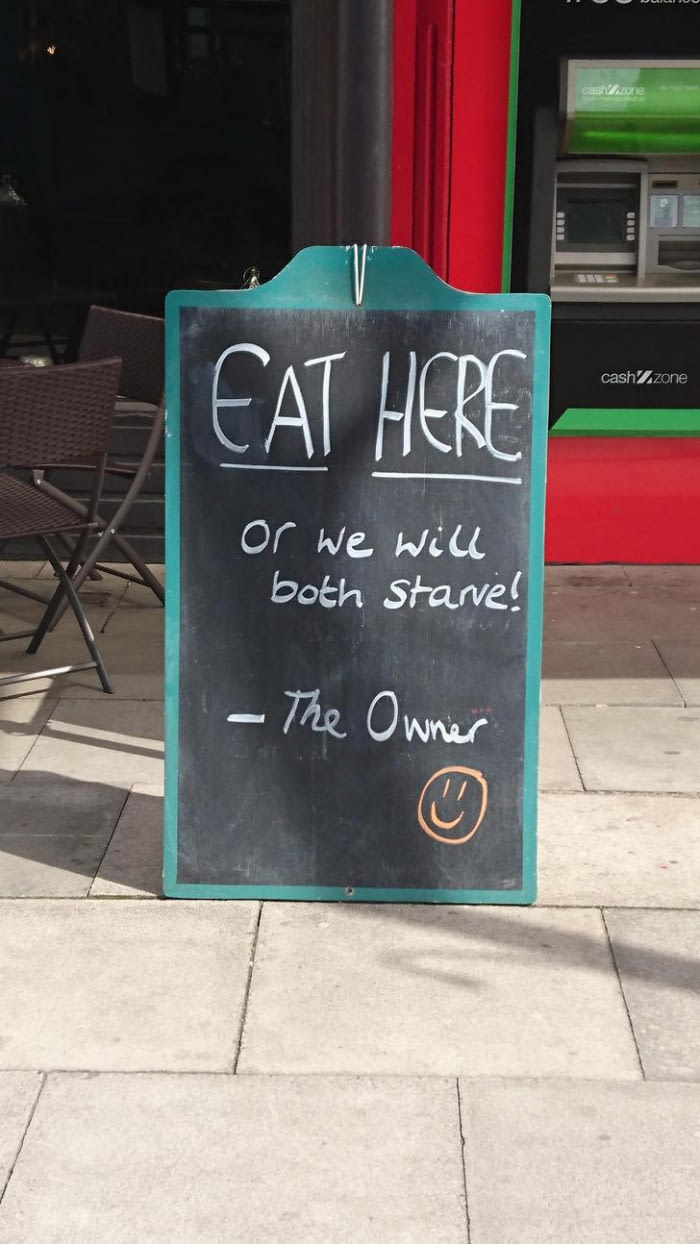 cashzone
cashzone
EAT HERE
Or we will
both starve!
- The Owner